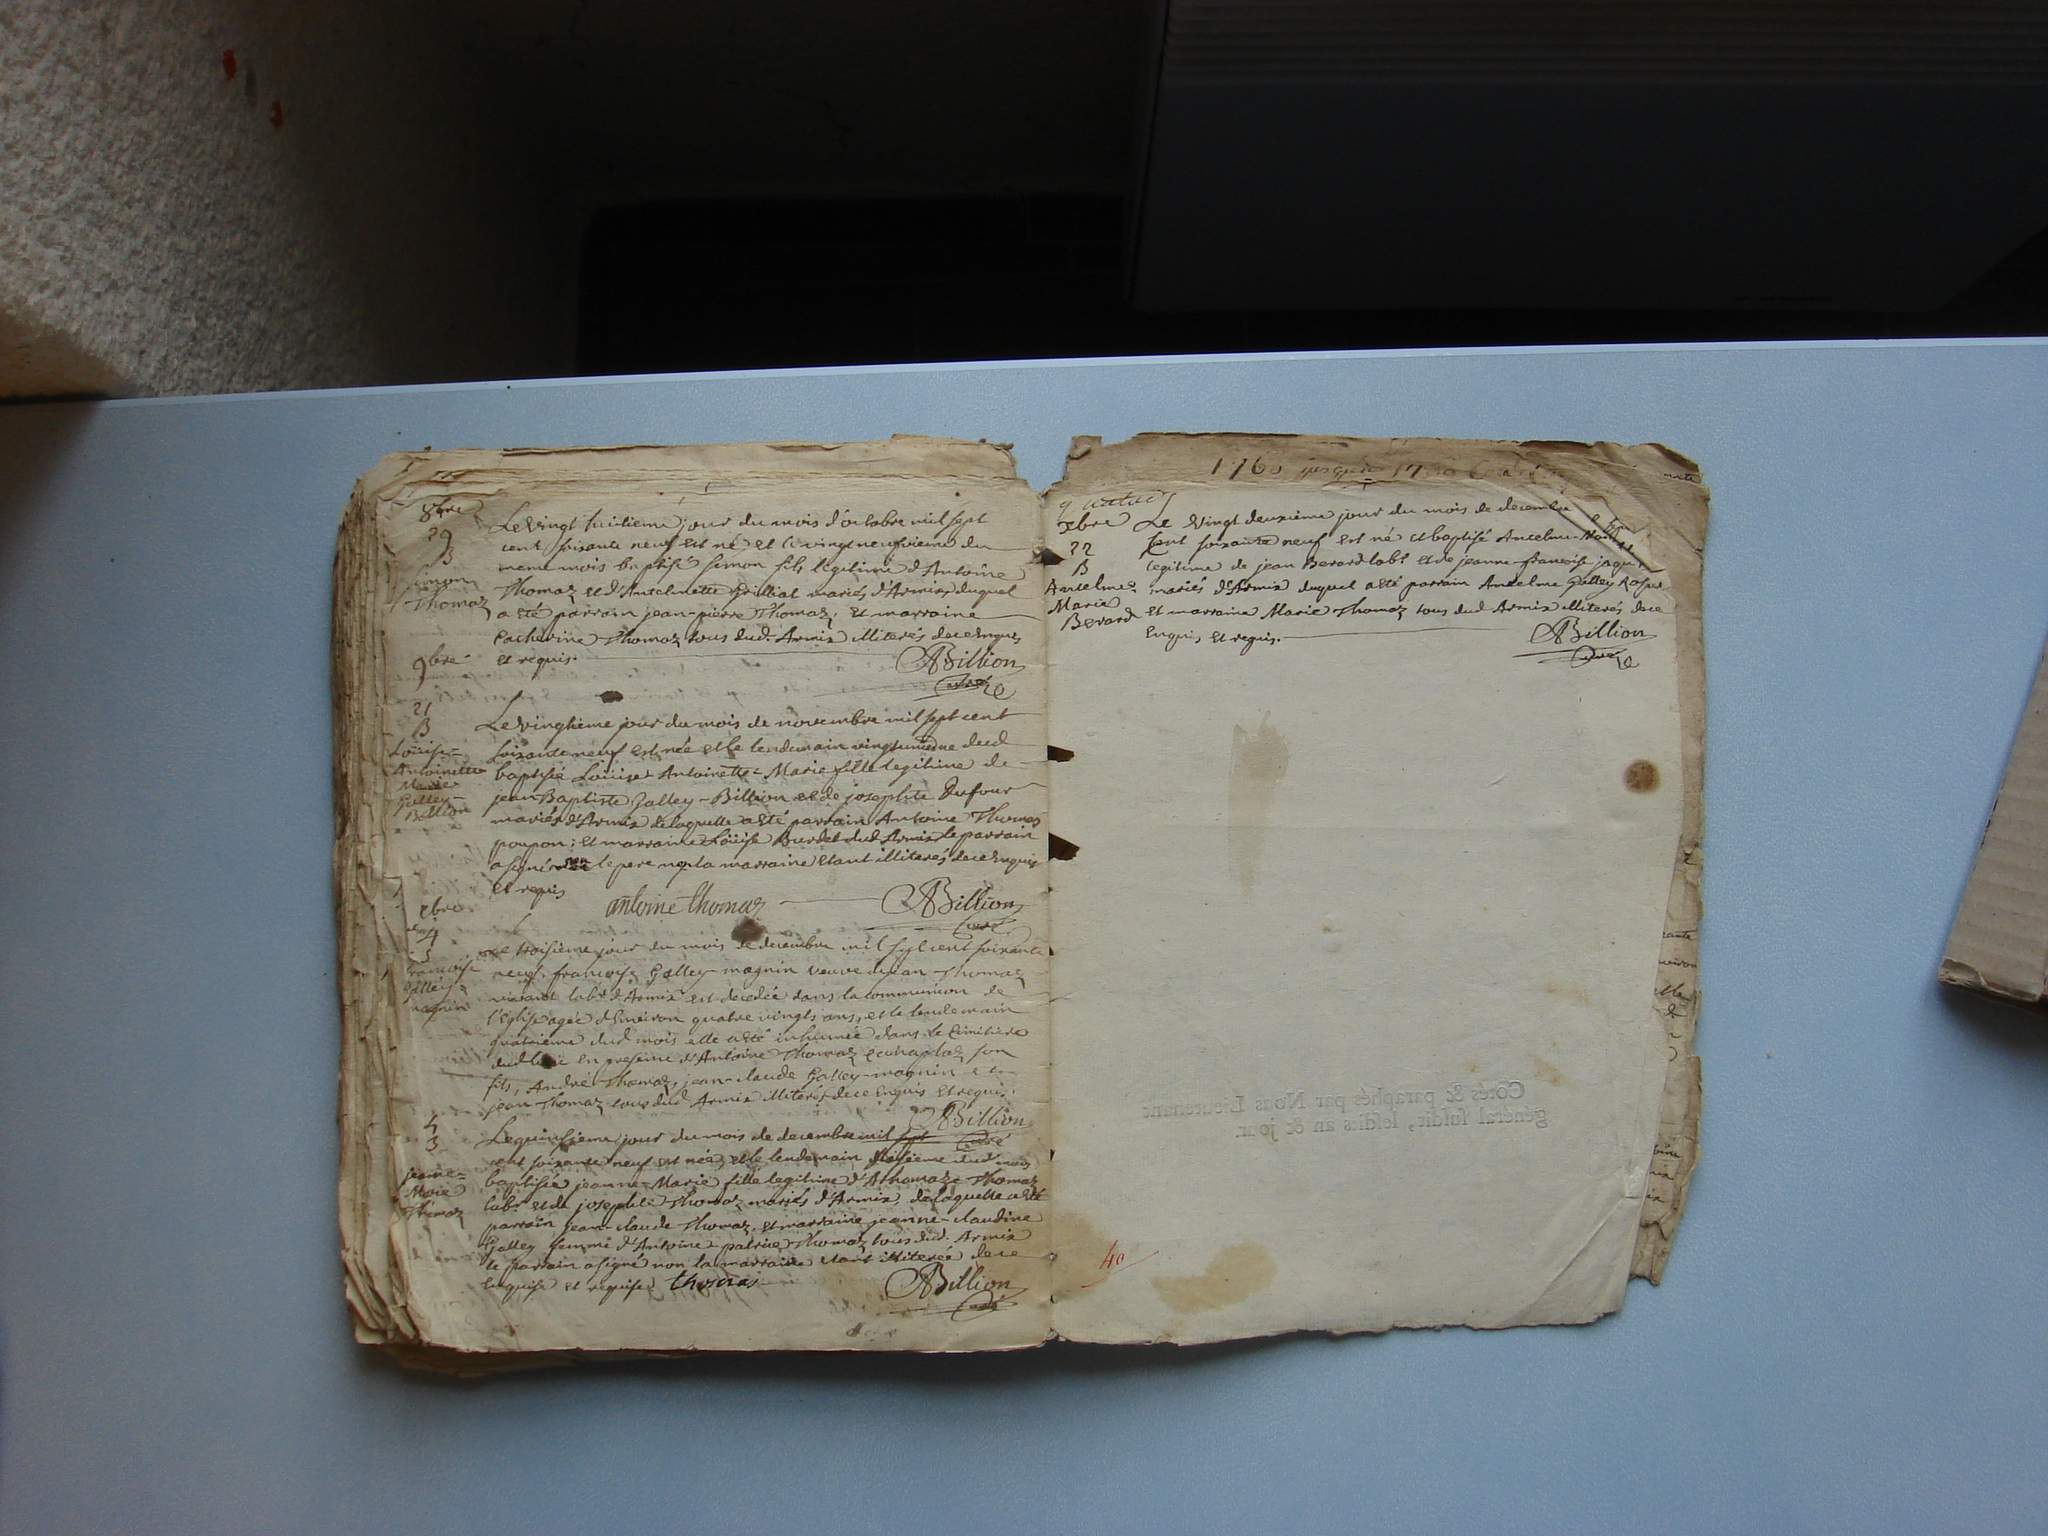 8bre
29
B
simon
Thomaz
Le vingt huitieme jour du mois d'octobre mil sept
cent soixante neuf est né et le vingt neufvieme du
meme mois baptisé simon fils legitime d'Antoine
Thomaz et d'Antoinette Grilliat mariés d'Armix duquel
a eté parrain jean-pierre Thomaz, et marraine
Catherine Thomaz tous dud. Armix illiterés de ce enquis
et requis.
ABillion
curé
9bre
21
B
Loüise-
Antoinette
Marie
Galley-
Billion
Le vingtieme jour du mois de novembre mil sept cent
soixante neuf est née et le lendemain vingtunieme dud
baptisée Loüise-Antoinette-Marie fille legitime de
jean Baptiste Galley-Billion et de josephte Dufour
mariés d'Armix de laquelle a eté parrain Antoine Thomaz
poupon; et marraine Loüise Burdet dud Armix le parrain
a signé non le pere ny la marraine etant illiterés de ce enquis
et requis
antoine thomaz
ABillion
curé
xbre
4
S
francoise
Galley-
magnin
Le troisieme jour du mois de decembre mil sept cent soixante
neuf, francoise Galley-magnin veuve de jean Thomaz
vivant labr d'Armix est decedée dans la communion de
l'eglise agée d'environ quatre vingts ans, et le lendemain
quatrieme dud mois elle a eté inhumée dans le cimitiere
dud lieu en presence d'Antoine Thomaz son
fils, André Thomaz, jean-claude Galley-magnin et
jean Thomaz tous dud Armix illiterés de ce enquis et requis.
ABillion
curé
jeanne-
Marie
Thomaz
Le quinsieme jour du mois de decembre mil sept
cent soixante neuf est née, et le lendemain seisieme dud mois
baptisée jeanne-Marie fille legitime d'Athanaze Thomaz
labr et de josephte Thomaz mariés d'Armix de laquelle a eté
parrain jean-claude Thomaz, et marraine jeanne-claudine
Galley femme d'Antoine-patrice Thomaz tous dud. Armix
le parrain a signé non la marraine etant illiterée de ce
enquise et requise
thomas
ABillion
curé
1760 jusqu'à
xbre
22
B
Anselme
Marie
Berard
Le vingt deuxième jour du mois de decembre
cent soixante neuf est né et baptisé Anselme-Marie
legitime de jean Berard labr et de jeanne-francoise jaque
mariés d'Armix duquel a eté parrain Anselme Galley Rosier
et marraine Marie Thomaz tous dud Armix illiterés de ce
enquis et requis.
ABillion
curé
Cotés & paraphés par Nous Lieutenant
général susdit, lesdits an & jour.
40